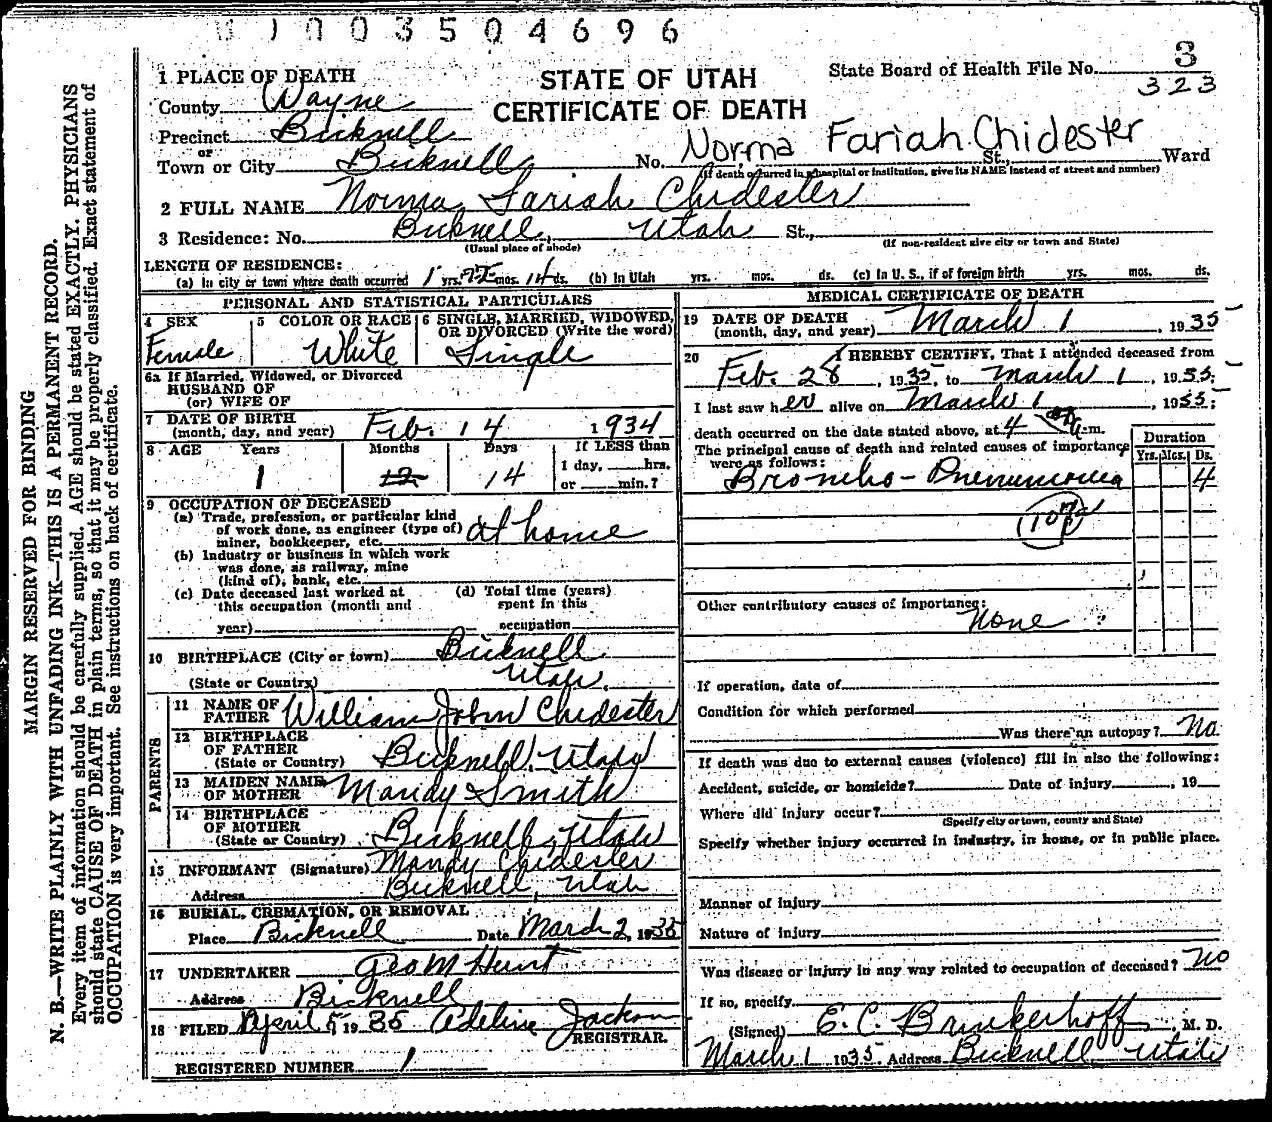 0 0 3 5 0 4 6 9 6
3
State Board of Health File No.
323
STATE OF UTAH
CERTIFICATE OF DEATH
1 PLACE OF DEATH
County Wayne
Precinct Bicknell
or
Town or City Bicknell No. St., Ward
Norma Fariah Chidester
(If death occurred in a hospital or institution, give its NAME instead of street and number)
2 FULL NAME Norma Fariah Chidester
3 Residence: No. Bicknell, Utah St.,
(Usual place of abode) (If non-resident give city or town and State)
LENGTH OF RESIDENCE:
(a) In city or town where death occurred 1 yrs. mos. 14 ds. (b) In Utah yrs. mos. ds. (c) In U. S., if of foreign birth yrs. mos. ds.
PERSONAL AND STATISTICAL PARTICULARS
4 SEX
Female
5 COLOR OR RACE
White
6 SINGLE, MARRIED, WIDOWED,
OR DIVORCED (Write the word)
Single
6a If Married, Widowed, or Divorced
HUSBAND OF
(or) WIFE OF
7 DATE OF BIRTH
(month, day, and year) Feb. 14 1934
8 AGE Years Months Days If LESS than
1 12 14 1 day, hrs.
or min.?
9 OCCUPATION OF DECEASED
(a) Trade, profession, or particular kind
of work done, as engineer (type of)
miner, bookkeeper, etc. at home
(b) Industry or business in which work
was done, as railway, mine
(kind of), bank, etc.
(c) Date deceased last worked at
this occupation (month and
year)
(d) Total time (years)
spent in this
occupation
10 BIRTHPLACE (City or town) Bicknell
(State or Country) Utah.
PARENTS
11 NAME OF
FATHER William John Chidester
12 BIRTHPLACE
OF FATHER
(State or Country) Bicknell, Utah
13 MAIDEN NAME
OF MOTHER Mandy Smith
14 BIRTHPLACE
OF MOTHER
(State or Country) Bicknell, Utah
15 INFORMANT (Signature) Mandy Chidester
Address Bicknell, Utah
16 BURIAL, CREMATION, OR REMOVAL
Place Bicknell Date March 2, 1935
17 UNDERTAKER Geo M Hunt
Address Bicknell
18 FILED April 5 1935 Adeline Jackson
REGISTRAR.
REGISTERED NUMBER 1
MEDICAL CERTIFICATE OF DEATH
19 DATE OF DEATH
(month, day, and year) March 1, 1935
20 I HEREBY CERTIFY, That I attended deceased from
Feb. 28, 1935, to March 1, 1935;
I last saw her alive on March 1, 1935;
death occurred on the date stated above, at 4 m.
The principal cause of death and related causes of importance
were as follows:
Duration
Yrs. Mos. Ds.
Broncho-Pneumonia 4
107
Other contributory causes of importance:
None
If operation, date of
Condition for which performed
Was there an autopsy? No
If death was due to external causes (violence) fill in also the following:
Accident, suicide, or homicide? Date of injury, 19
Where did injury occur?
(Specify city or town, county and State)
Specify whether injury occurred in industry, in home, or in public place.
Manner of injury
Nature of injury
Was disease or injury in any way related to occupation of deceased? No
If so, specify
(Signed) E. C. Brinkerhoff, M. D.
March 1 1935 Address Bicknell Utah
MARGIN RESERVED FOR BINDING
N. B.—WRITE PLAINLY WITH UNFADING INK—THIS IS A PERMANENT RECORD.
Every item of information should be carefully supplied. AGE should be stated EXACTLY. PHYSICIANS
should state CAUSE OF DEATH in plain terms, so that it may be properly classified. Exact statement of
OCCUPATION is very important. See instructions on back of certificate.